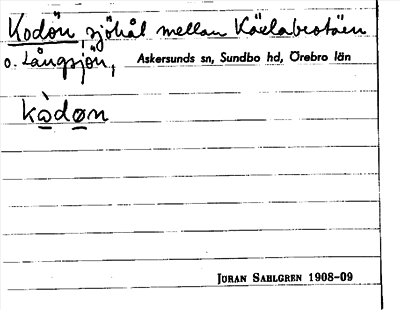 Kodön, sjöhål mellan Kärlabrotäen
o. Långsjön, Askersunds sn, Sundbo hd, Örebro län
kòdøn
JÖRAN SAHLGREN 1908-09